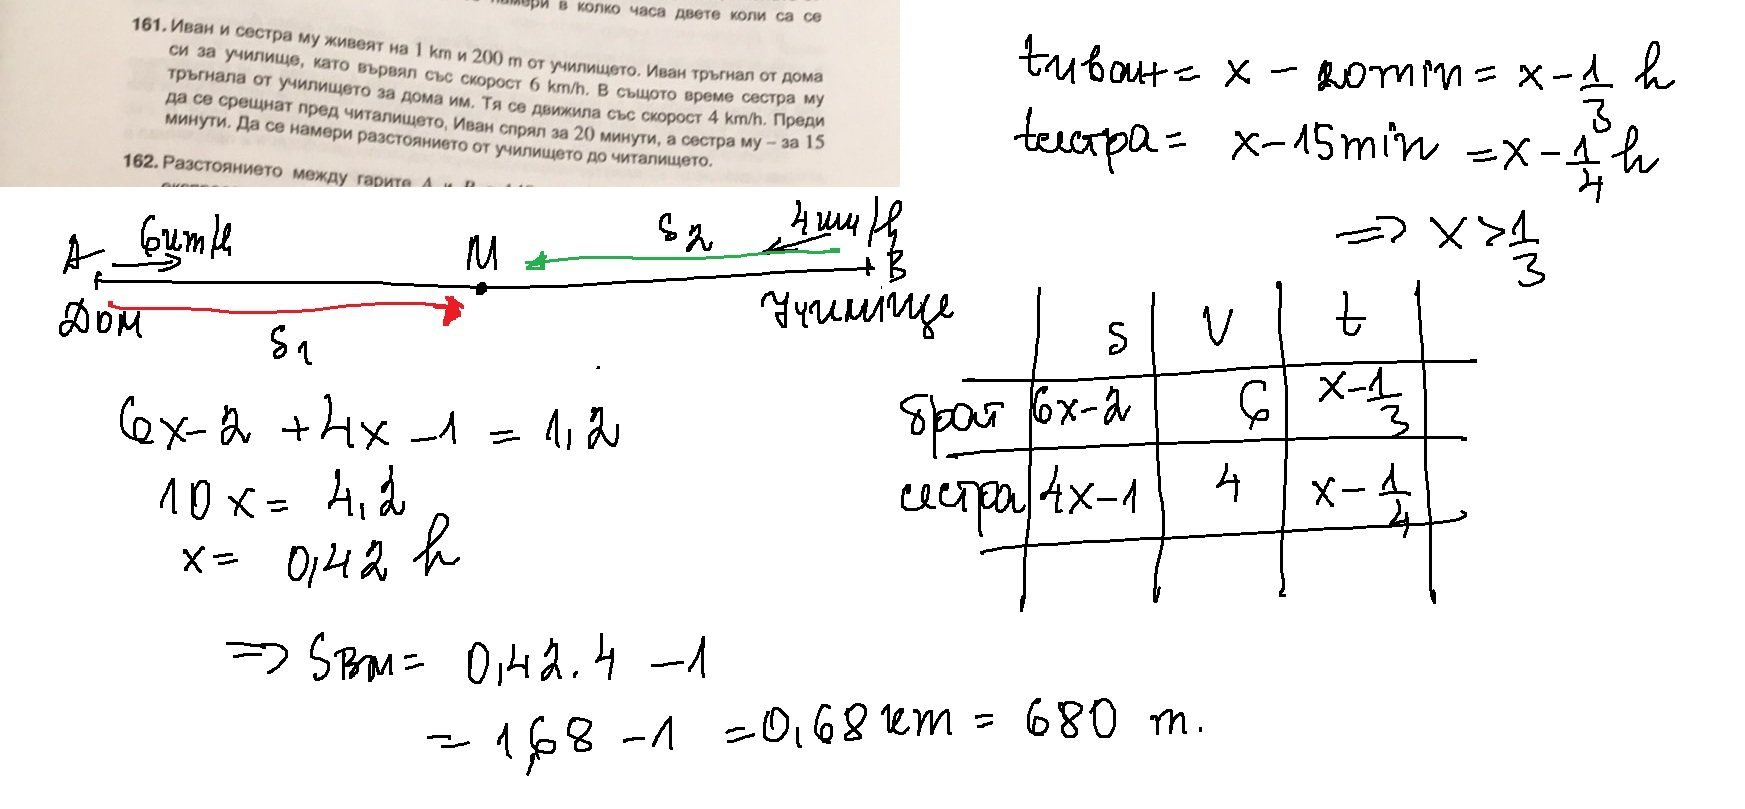 намери в колко часа двете коли са се
161. Иван и сестра му живеят на 1 km и 200 m от училището. Иван тръгнал от дома
си за училище, като вървял със скорост 6 km/h. В същото време сестра му
тръгнала от училището за дома им. Тя се движила със скорост 4 km/h. Преди
да се срещнат пред читалището, Иван спрял за 20 минути, а сестра му – за 15
минути. Да се намери разстоянието от училището до читалището.
162. Разстоянието между гарите A и B
tиван = x - 20 min = x - 1/3 h
tсестра = x - 15 min = x - 1/4 h
=> x > 1/3
A 6 km/h M S2 4 km/h B
Дом S1 Училище
S V t
брат 6x-2 6 x-1/3
сестра 4x-1 4 x-1/4
6x-2 + 4x -1 = 1,2
10x = 4,2
x = 0,42 h
=> SBM = 0,42.4 -1
= 1,68 -1 = 0,68 km = 680 m.